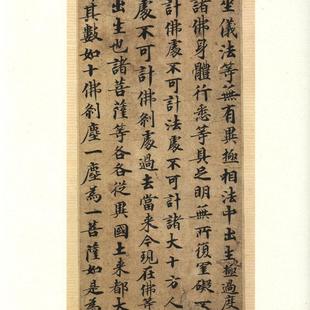 坐儀法等無有異極相法中出生極過度
諸佛身體行悉等具之明無所復罣礙
計佛處不可計法處不可計諸大十方人
處不可計佛剎處過去當来今現在佛等
出生也諸菩薩等各各從異國土来都大
其數如十佛剎塵一塵為一菩薩如是為